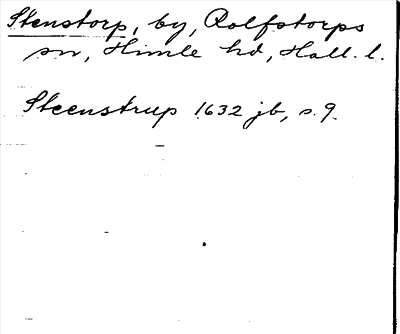 Stenstorp, by, Rolfstorps
sn, Himle hd, Hall. l.
Steenstrup 1632 jb, s. 9.